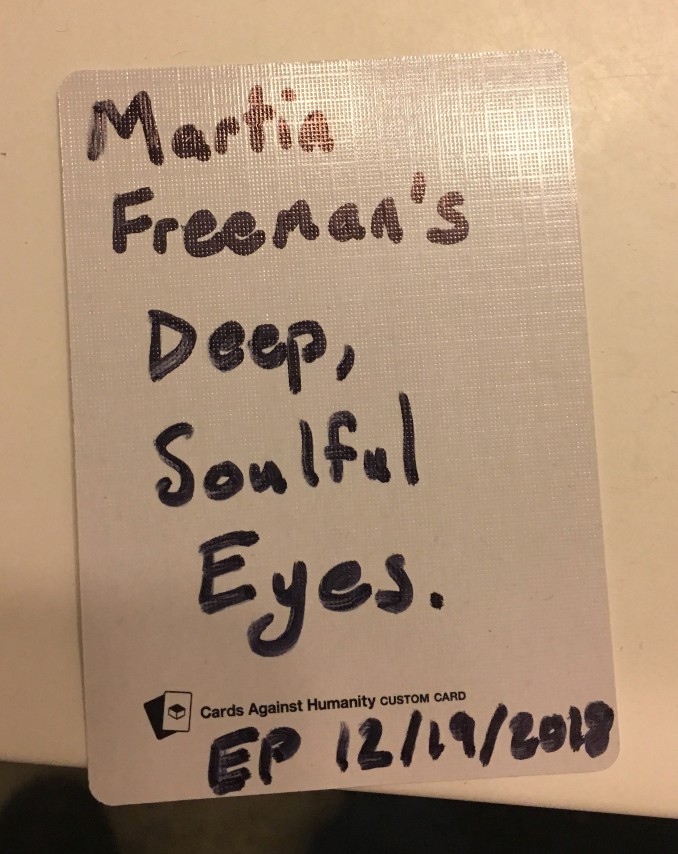 Martin
Freeman's
Deep,
Soulful
Eyes.
Cards Against Humanity CUSTOM CARD
EP 12/19/2018